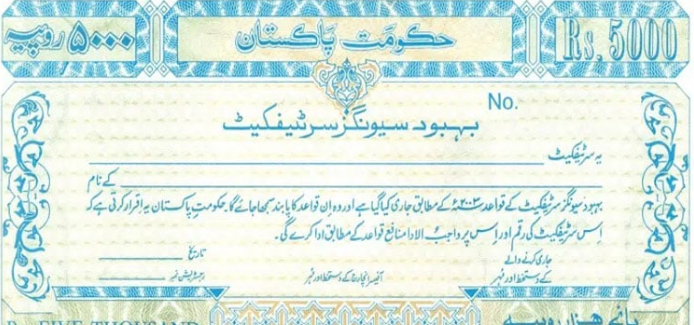 ۵۰۰۰ روپیہ حکومت پاکستان Rs. 5000
No.
بہبود سیونگز سرٹیفکیٹ
یہ سرٹیفکیٹ
کے نام
بہبود سیونگز سرٹیفکیٹ کے قواعد ۲۰۰۳ء کے مطابق جاری کیا گیا ہے اور وہ ان قواعد کا پابند سمجھا جائے گا۔ حکومت پاکستان یہ اقرار کرتی ہے کہ
اس سرٹیفکیٹ کی رقم اور اس پر واجب الادا منافع قواعد کے مطابق ادا کرے گی۔
جاری کرنے والے تاریخ
کے دستخط اور مہر آفیسر انچارج کے دستخط اور مہر رجسٹریشن نمبر
FIVE THOUSAND پانچ ہزار روپیہ